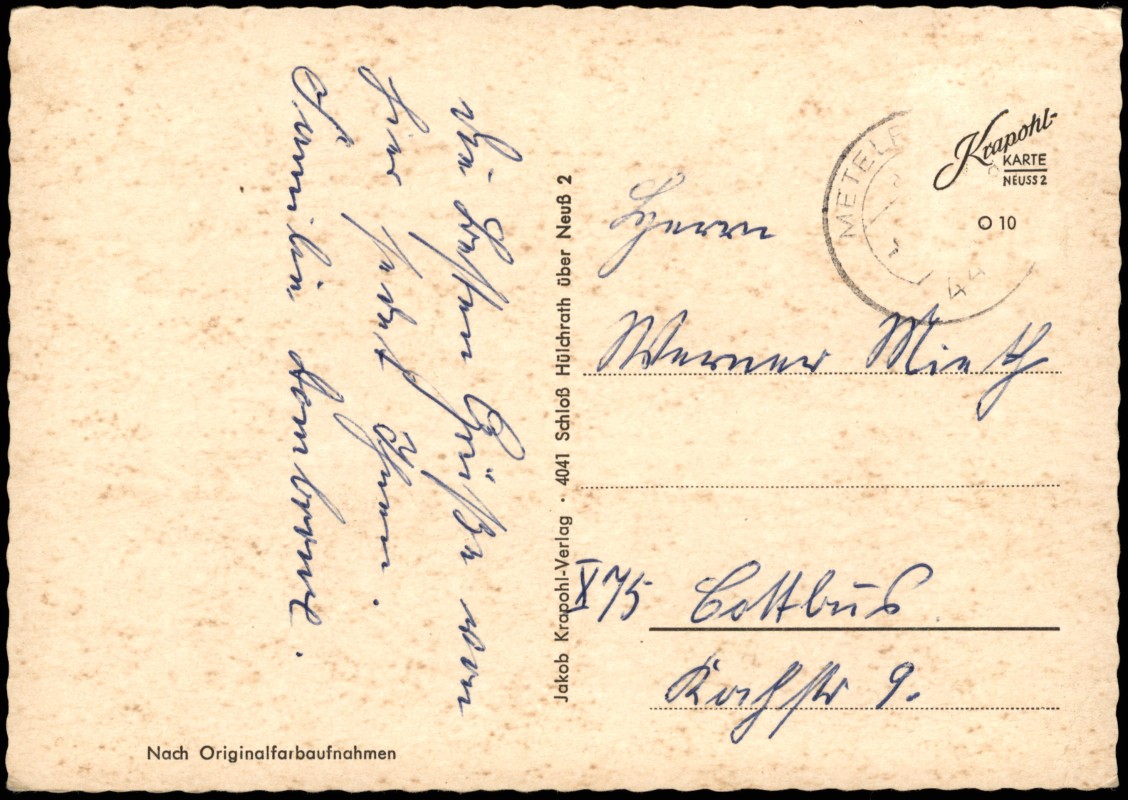 Die besten Grüße von
hier sendet Ihnen.
Familie
Jakob Krapohl-Verlag · 4041 Schloß Hülchrath über Neuß 2
Nach Originalfarbaufnahmen
METELE
44
Krapohl-
KARTE
NEUSS 2
O 10
Herrn
Werner Mieth
X 75 Cottbus
Kochstr 9.